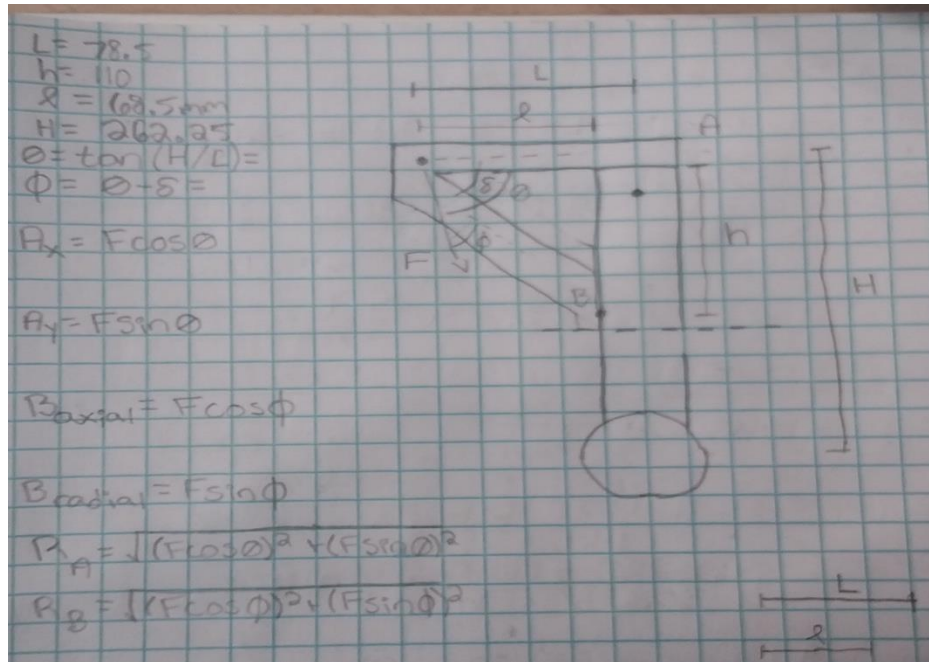 L= 78.5
h= 110
l = 68.5mm
H= 262.25
θ= tan (H/L)=
Φ= θ-δ=
Ax = Fcosθ
Ay= Fsinθ
Baxial= Fcosφ
Bradial= Fsinφ
RA= √(Fcosθ)²+(Fsinθ)²
RB= √(Fcosφ)²+(Fsinφ)²
L
l
A
δ
θ
φ
F
h
B
H
L
l